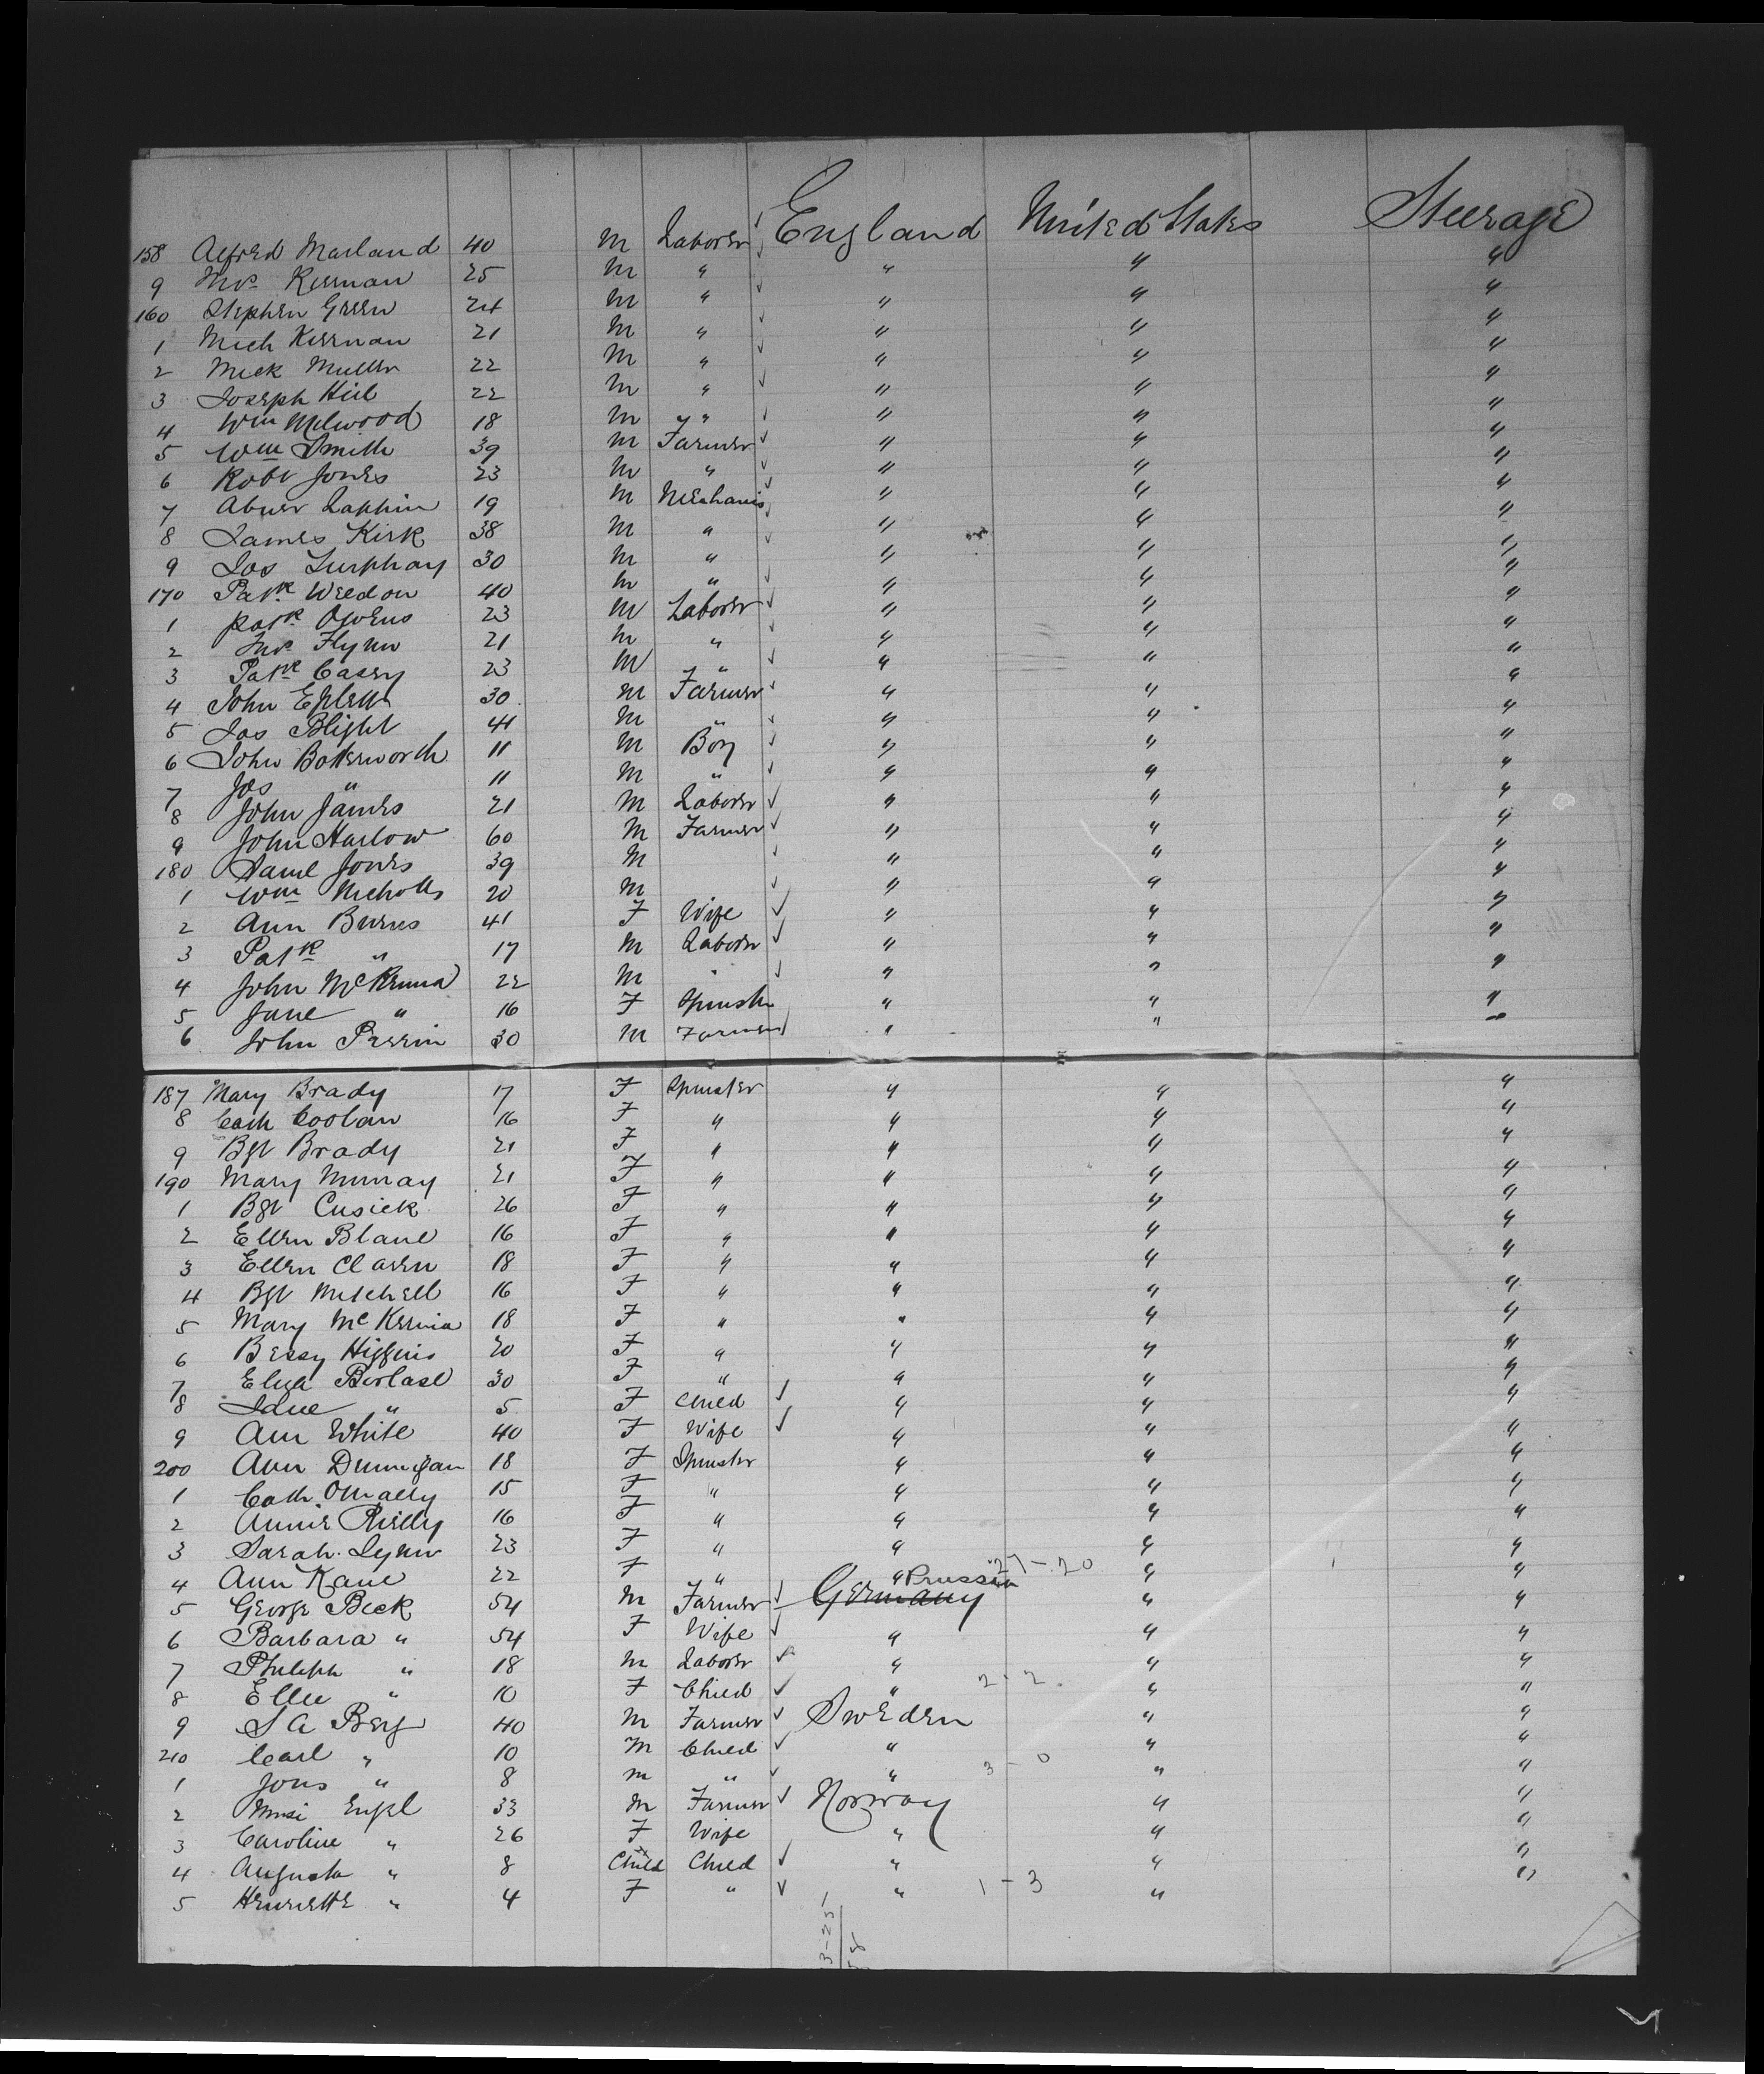 158 Alfred Marland 40 M Laborer England United States Steerage
9 Jno. Kiernan 25 M " " " "
160 Stephen Green 24 M " " " "
1 Mich Kiernan 21 M " " " "
2 Mick Muller 22 M " " " "
3 Joseph Hill 22 M " " " "
4 Wm Milwood 18 M " " " "
5 Wm Smith 39 M Farmer " " "
6 Robt Jones 23 M " " " "
7 Abner Laphin 19 M Mechanic " " "
8 James Kirk 38 M " " " "
9 Jos 30 M " " " "
170 Patk Weedon 40 M " " " "
1 Patk Owens 23 M Laborer " " "
2 Jno. Flynn 21 M " " " "
3 Patk Casey 23 M " " " "
4 John Eplett 30 M Farmer " " "
5 Jos Blight 41 M " " " "
6 John Botterworth 11 M Boy " " "
7 Jos " 11 M " " " "
8 John James 21 M Laborer " " "
9 John Harlow 60 M Farmer " " "
180 Saml Jones 39 M " " "
1 Wm Nicholls 20 M " " "
2 Ann Burns 41 F Wife " " "
3 Patk " 17 M Laborer " " "
4 John McKenna 22 M " " " "
5 Jane " 16 F Spinster " " "
6 John Perrin 30 M Farmer " " "
187 Mary Brady 17 F Spinster " " "
8 Cath Coolan 16 F " " " "
9 Bgt Brady 21 F " " " "
190 Mary Murray 21 F " " " "
1 Bgt Cusick 26 F " " " "
2 Ellen Blane 16 F " " " "
3 Ellen Claren 18 F " " " "
4 Bgt Mitchell 16 F " " " "
5 Mary McKenna 18 F " " " "
6 Bessy Higgins 20 F " " " "
7 Eliza Borlase 30 F " " " "
8 Jane " 5 F Child " " "
9 Ann White 40 F Wife " " "
200 Ann Dunnigan 18 F Spinster " " "
1 Cath OMally 15 F " " " "
2 Annie Rielly 16 F " " " "
3 Sarah Lynn 23 F " " " "
4 Ann Kane 22 F " " " "
Prussia 27-20
5 George Beck 54 M Farmer Germany " "
6 Barbara " 54 F Wife " " "
7 Philiph " 18 M Laborer " " "
8 Ellie " 10 F Child " 2-2 " "
9 S A Berg 40 M Farmer Sweden " "
210 Carl " 10 M Child " " "
1 Jons " 8 M " " 3-0 " "
2 Engel 33 M Farmer Norway " "
3 Caroline " 26 F Wife " " "
4 Augusta " 8 Child Child " " "
5 Henriette " 4 F " " 1-3 " "
3-25
58